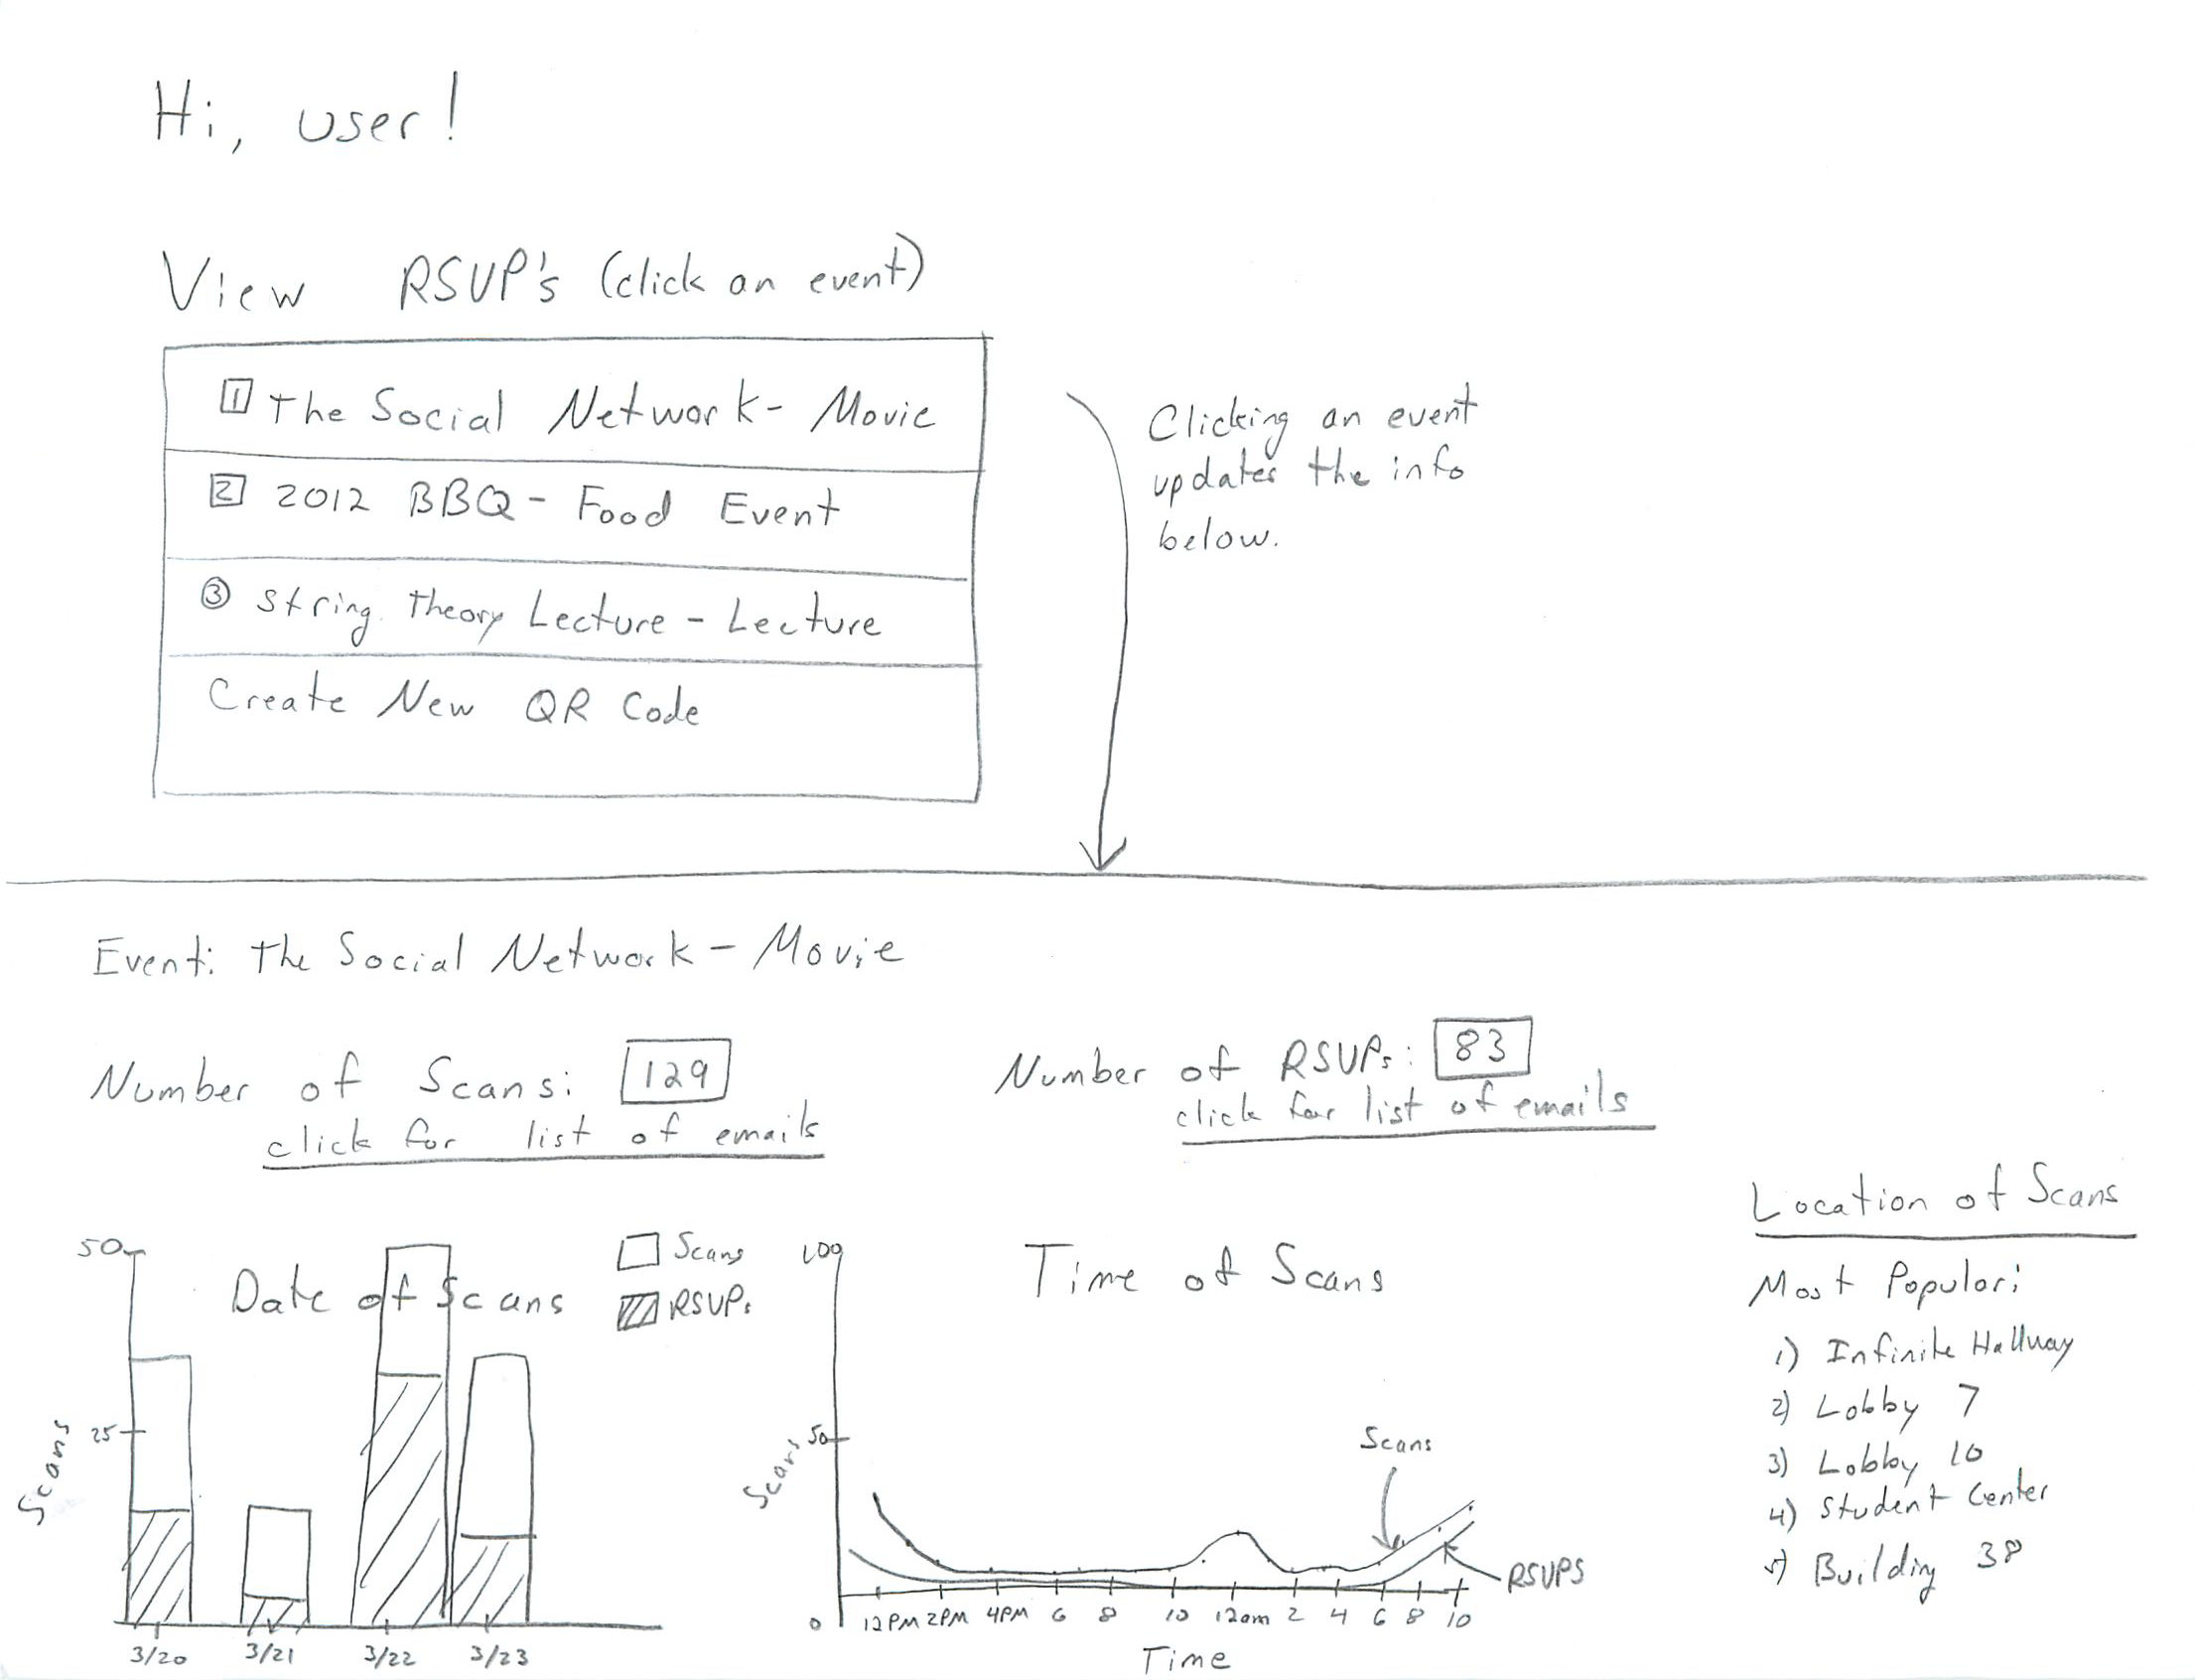 Hi, user!
View RSUP's (click an event)
1 The Social Network - Movie
2 2012 BBQ - Food Event
3 String Theory Lecture - Lecture
Create New QR Code
Clicking an event
updates the info
below.
Event: The Social Network - Movie
Number of Scans: 129
click for list of emails
Number of RSVPs: 83
click for list of emails
Date of Scans
Scans
RSVPs
50
25
Scans
3/20 3/21 3/22 3/23
Time of Scans
100
50
0
Scans
Scans
RSVPS
12PM 2PM 4PM 6 8 10 12am 2 4 6 8 10
Time
Location of Scans
Most Popular:
1) Infinite Hallway
2) Lobby 7
3) Lobby 10
4) Student Center
5) Building 38